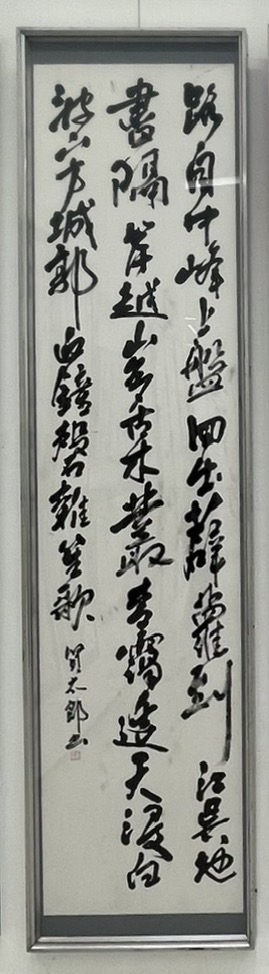 路自中峰上盤回出薜蘿到江吳地
盡隔岸越山多古木叢青靄遙天浸白
波下方城郭近鐘磬雜笙歌 太郎